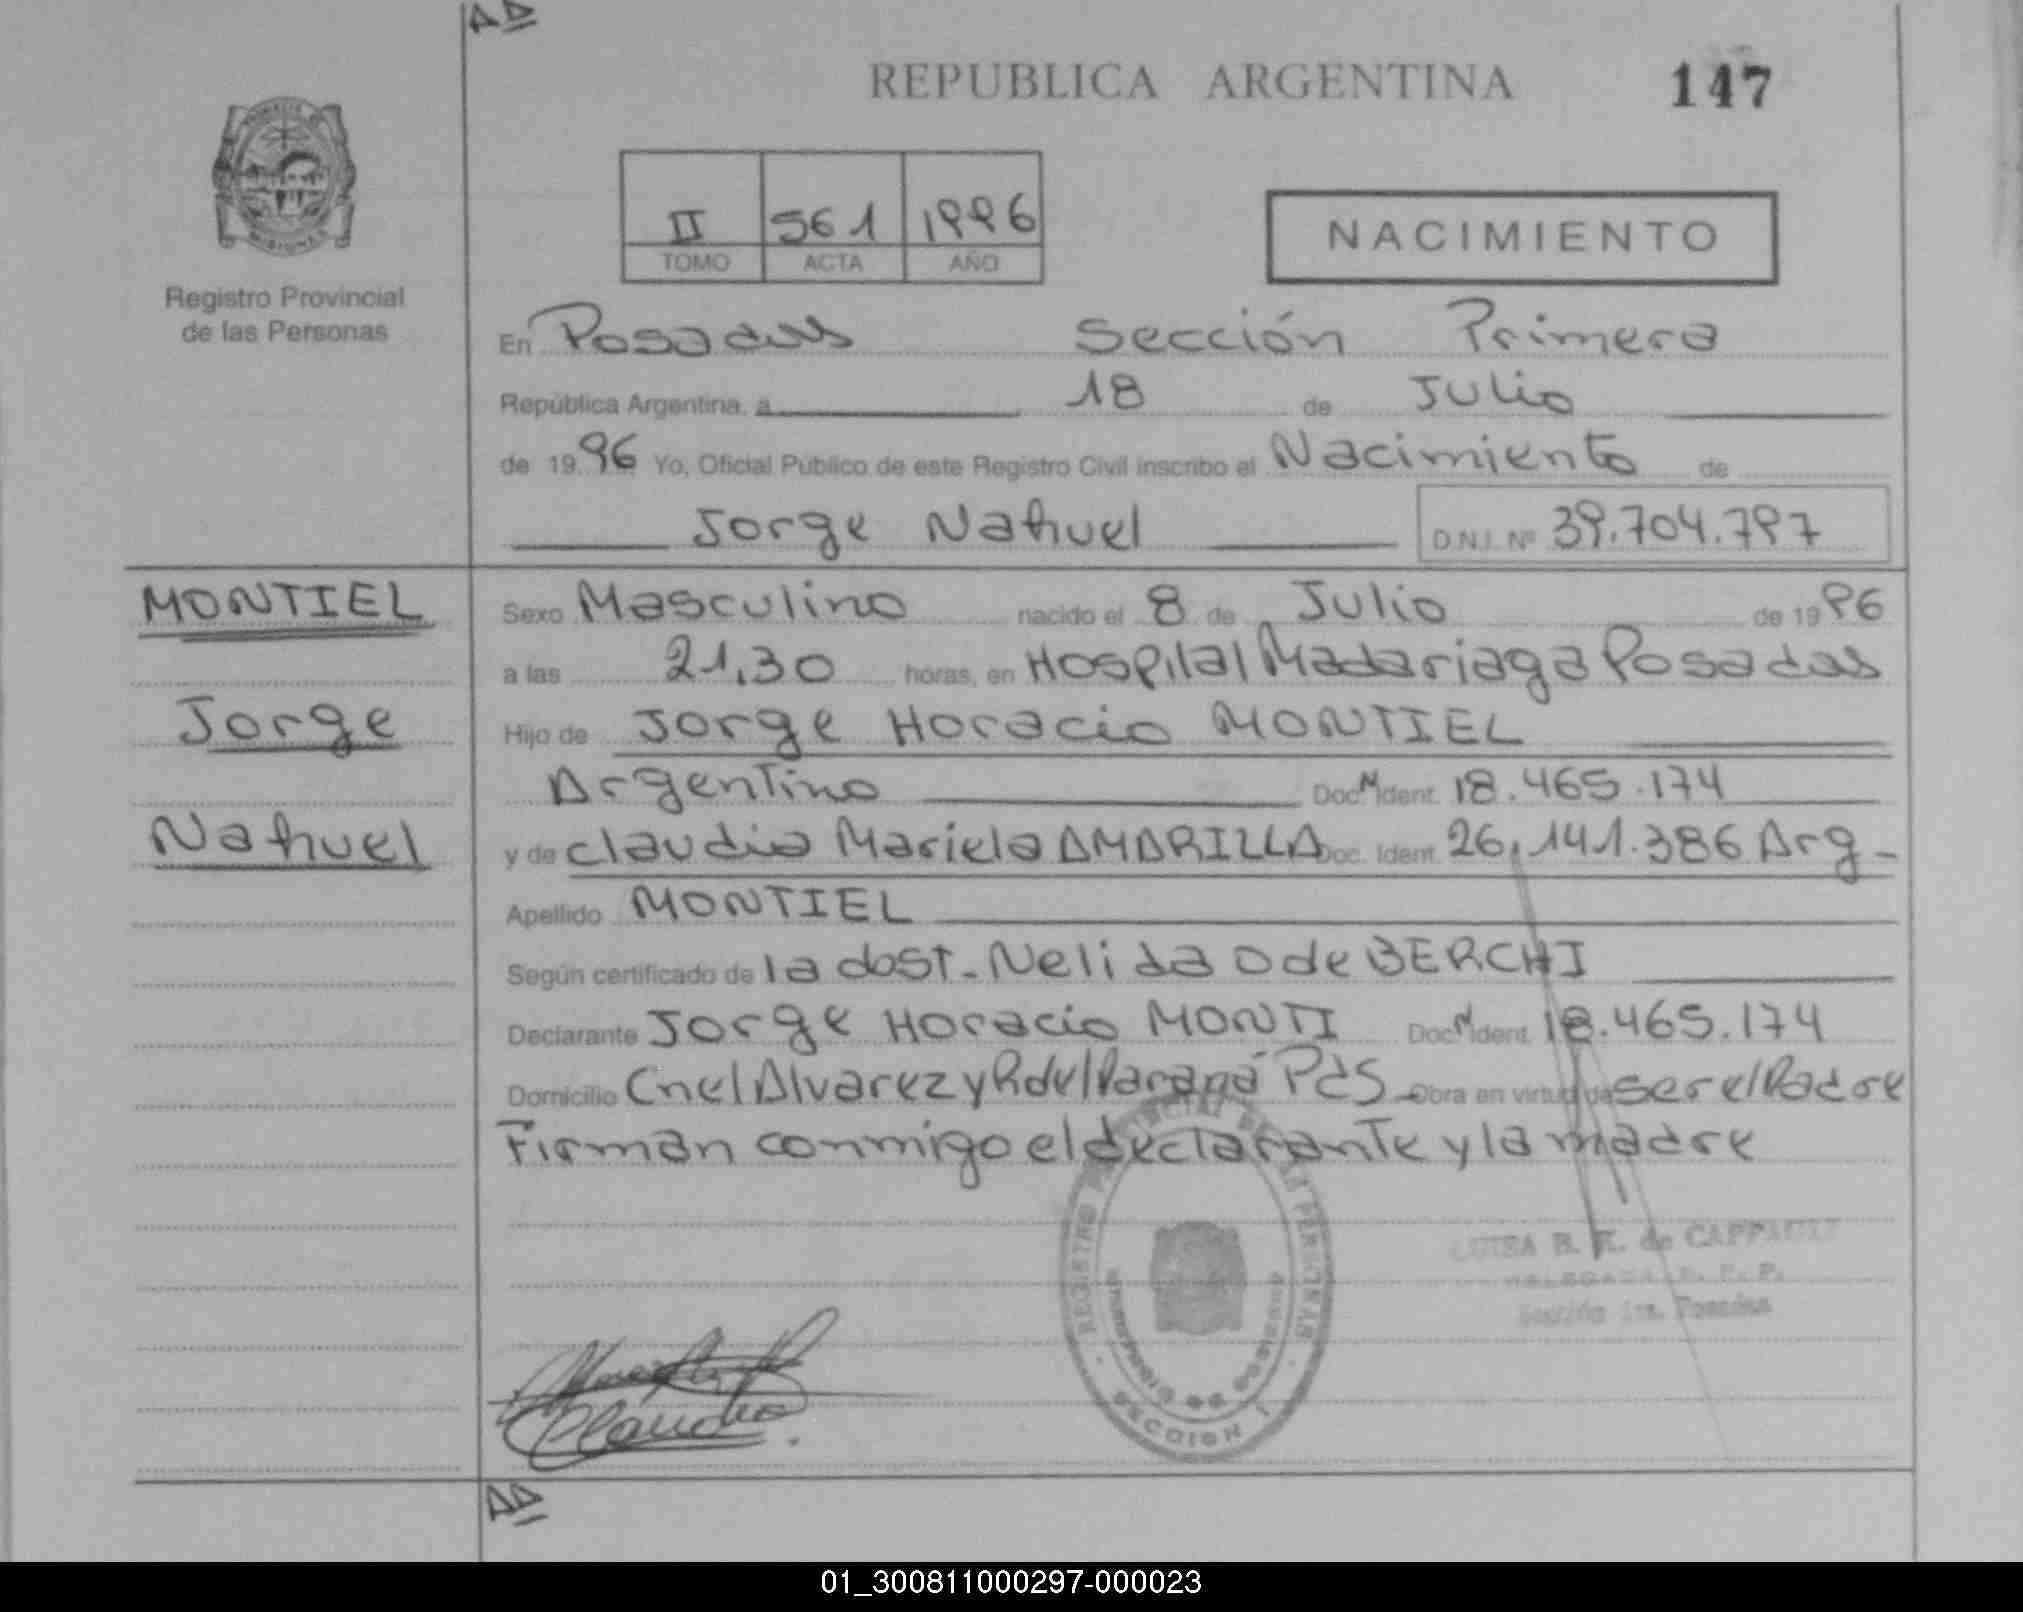 AD
REPUBLICA ARGENTINA 147
II 561 1996
TOMO ACTA AÑO
NACIMIENTO
MISIONES
Registro Provincial
de las Personas
En Posadas Sección Primera
República Argentina, a 18 de Julio
de 1996 Yo, Oficial Público de este Registro Civil inscribo el Nacimiento de
Jorge Nahuel D.N.I. Nº 39.704.797
MONTIEL
Jorge
Nahuel
Sexo Masculino nacido el 8 de Julio de 1996
a las 21,30 horas, en Hospital Madariaga Posadas
Hijo de Jorge Horacio MONTIEL
Argentino Doc. N Ident. 18.465.174
y de Claudia Mariela AMARILLA Doc. Ident. 26.141.386 Arg -
Apellido MONTIEL
Según certificado de la obst. Nelida O de BERCHI
Declarante Jorge Horacio MONTI Doc. N Ident. 18.465.174
Domicilio Cnel Alvarez y R del Paraná Pds Obra en virtud de ser el Padre
Firman conmigo el declarante y la madre
REGISTRO PROVINCIAL DE LAS PERSONAS
SECCION 1
LUISA B. K. de
DELEGADA R. P. P.
Sección 1ra. Posadas
Claudia
AD
01_300811000297-000023